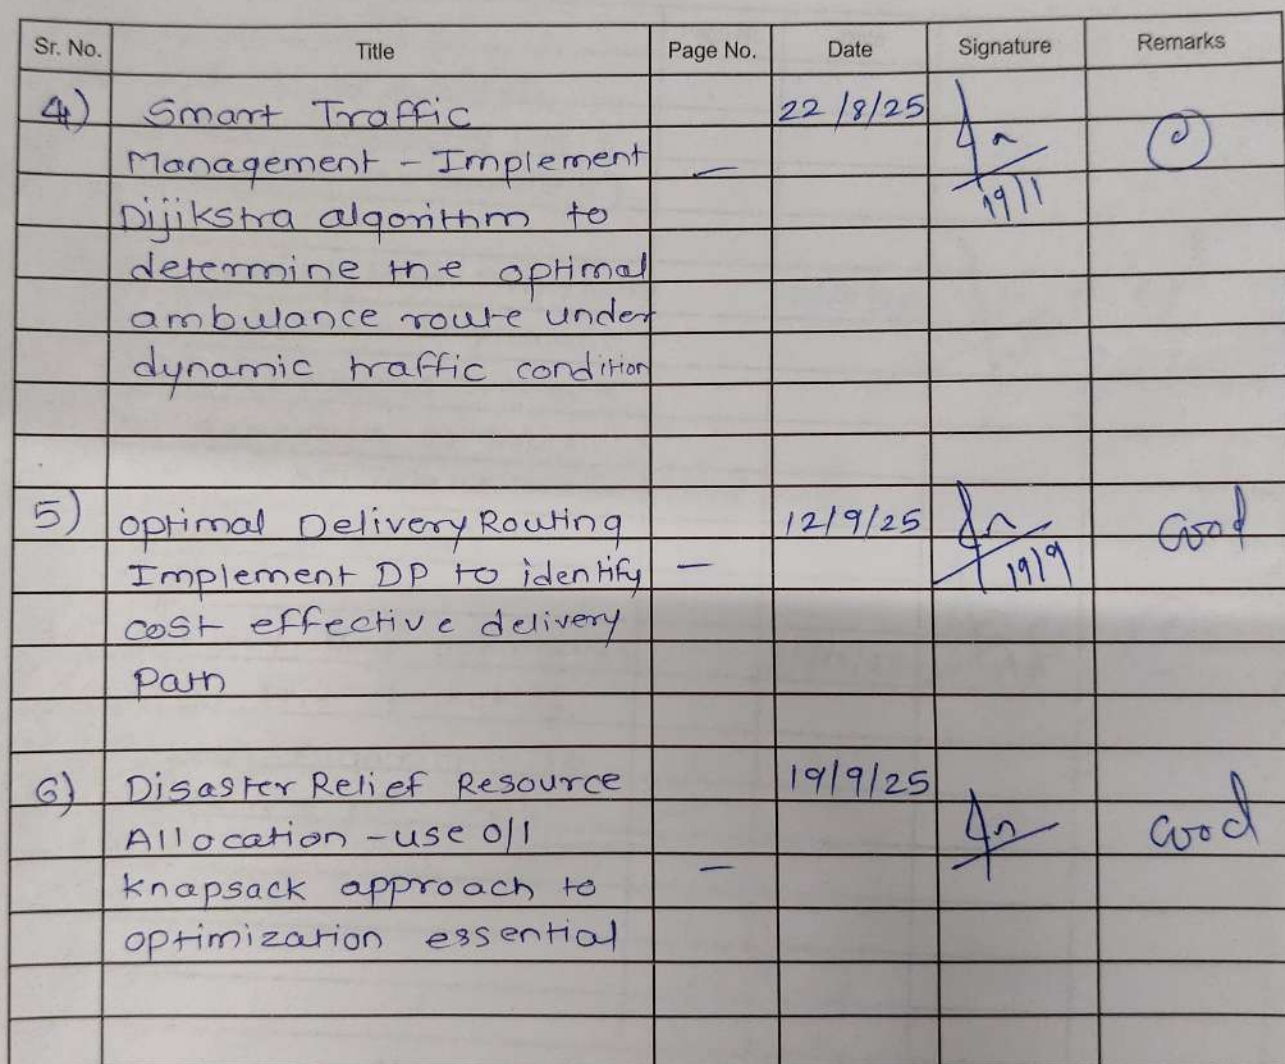 Sr. No. Title Page No. Date Signature Remarks
4) Smart Traffic 22/8/25
Management - Implement —
Dijikstra algorithm to 19/1
determine the optimal
ambulance route under
dynamic traffic condition
5) optimal Delivery Routing 12/9/25 Good
Implement DP to identify — 19/9
cost effective delivery
Path
6) Disaster Relief Resource 19/9/25
Allocation - use 0/1 Good
knapsack approach to —
optimization essential